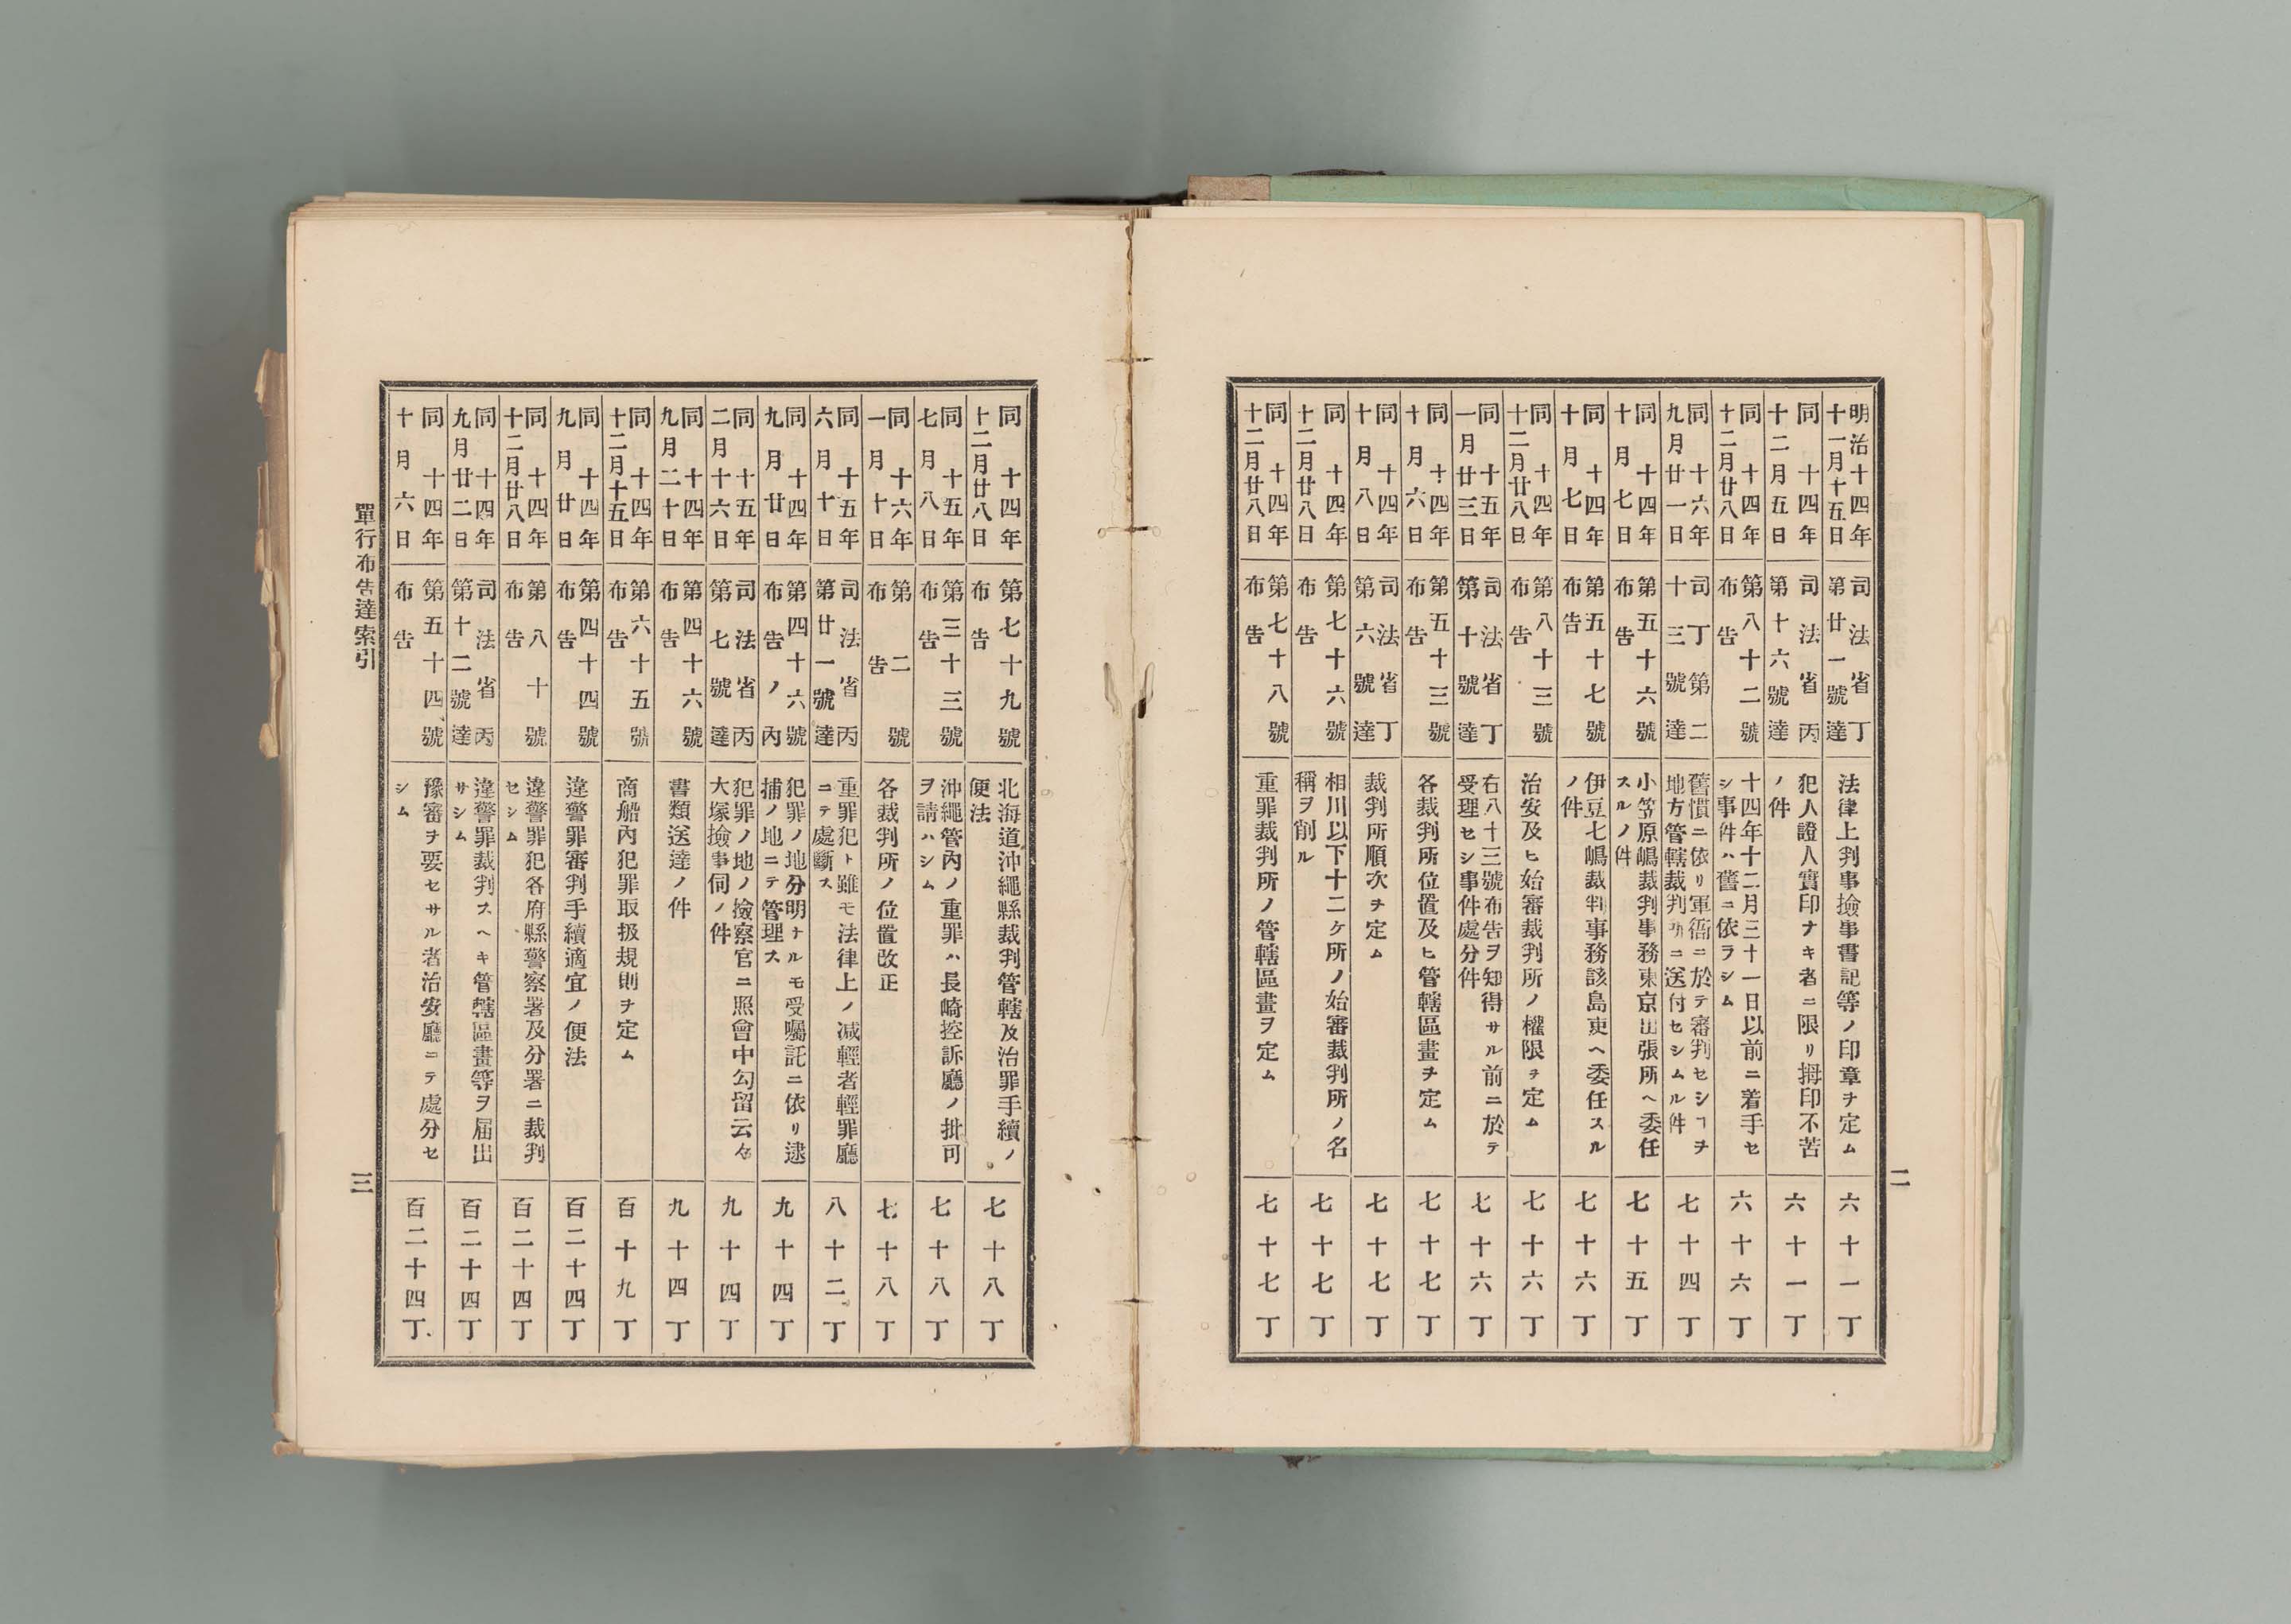 二
明治十四年
十一月十五日
司法省丁
第廿一號達
法律上判事撿事書記等ノ印章ヲ定ム
六十一丁
同十四年
十二月五日
司法省丙
第十六號達
犯人證人實印ナキ者ニ限リ拇印不苦
ノ件
六十一丁
同十四年
十二月廿八日
第八十二號
布告
十四年十二月三十一日以前ニ着手セ
シ事件ハ舊ニ依ラシム
六十六丁
同十六年
九月廿一日
司丁第二
十三號達
舊慣ニ依リ軍衙ニ於テ審判セシヿヲ
地方管轄裁判所ニ送付セシムル件
七十四丁
同十四年
十月七日
第五十六號
布告
小笠原嶋裁判事務東京出張所ヘ委任
スルノ件
七十五丁
同十四年
十月七日
第五十七號
布告
伊豆七嶋裁判事務該島吏ヘ委任スル
ノ件
七十六丁
同十四年
十二月廿八日
第八十三號
布告
治安及ヒ始審裁判所ノ權限ヲ定ム
七十六丁
同十五年
一月廿三日
司法省丁
第十號達
右八十三號布告ヲ知得サル前ニ於テ
受理セシ事件處分件
七十六丁
同十四年
十月六日
第五十三號
布告
各裁判所位置及ヒ管轄區畫ヲ定ム
七十七丁
同十四年
十月八日
司法省丁
第六號達
裁判所順次ヲ定ム
七十七丁
同十四年
十二月廿八日
第七十六號
布告
相川以下十二ケ所ノ始審裁判所ノ名
稱ヲ削ル
七十七丁
同十四年
十二月廿八日
第七十八號
布告
重罪裁判所ノ管轄區畫ヲ定ム
七十七丁
同十四年
十二月廿八日
第七十九號
布告
北海道沖繩縣裁判管轄及治罪手續ノ
便法
七十八丁
同十五年
七月八日
第三十三號
布告
沖繩管內ノ重罪ハ長崎控訴廳ノ批可
ヲ請ハシム
七十八丁
同十六年
一月十日
第二號
布告
各裁判所ノ位置改正
七十八丁
同十五年
六月十日
司法省丙
第廿一號達
重罪犯ト雖モ法律上ノ減輕者輕罪廳
ニテ處斷ス
八十二丁
同十四年
九月廿日
第四十六號
布告ノ內
犯罪ノ地分明ナルモ受囑託ニ依リ逮
捕ノ地ニテ管理ス
九十四丁
同十五年
二月十六日
司法省丙
第七號達
犯罪ノ地ノ撿察官ニ照會中勾留云々
大塚撿事伺ノ件
九十四丁
同十四年
九月二十日
第四十六號
布告
書類送達ノ件
九十四丁
同十四年
十二月十五日
第六十五號
布告
商船內犯罪取扱規則ヲ定ム
百十九丁
同十四年
九月廿日
第四十四號
布告
違警罪審判手續適宜ノ便法
百二十四丁
同十四年
十二月廿八日
第八十號
布告
違警罪犯各府縣警察署及分署ニ裁判
セシム
百二十四丁
同十四年
九月廿二日
司法省丙
第十二號達
違警罪裁判スヘキ管轄區畫等ヲ届出
サシム
百二十四丁
同十四年
十月六日
第五十四號
布告
豫審ヲ要セサル者治安廳ニテ處分セ
シム
百二十四丁
單行布告達索引
三